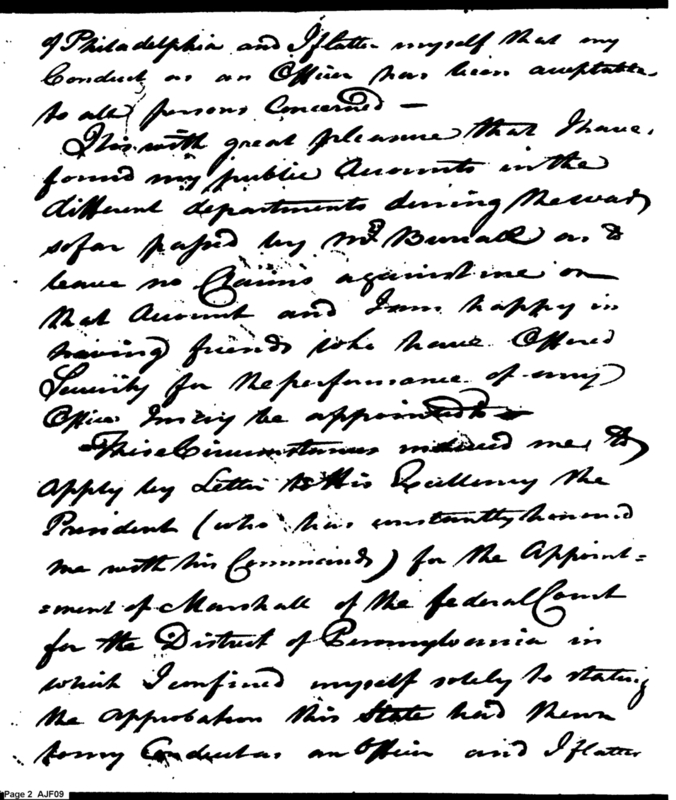 of Philadelphia and I flatter myself that my
Conduct as an Officer has been acceptable
to all persons Concerned —
It is with great pleasure that I have
found my public Accounts in the
different departments during the war
so far passed by Mr. Burrall as to
leave no Claims against me on
that Account and I am happy in
having friends who have Offered
Security for the performance of any
Office I may be appointed to —
These Circumstances induced me to
apply by Letter to His Excellency the
President (who has constantly honored
me with his Commands) for the Appoint=
=ment of Marshall of the federal Court
for the District of Pennsylvania in
which I confined myself solely to stating
the approbation this State had shewn
to my Conduct as an Officer and I flatter
Page 2 AJF09